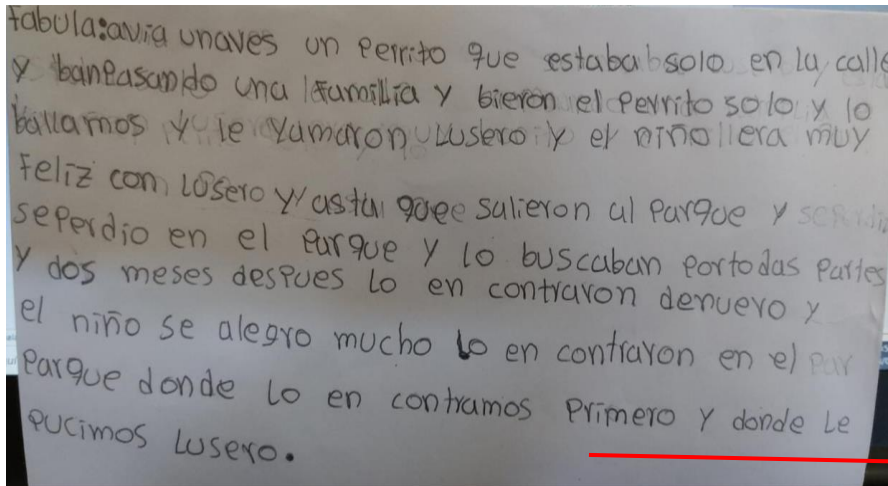 Fabula:avia unaves un perrito que estaba solo en la calle
y banpasando una familia y bieron el perrito solo y lo
ballamos y le yamaron Lusero y el niño era muy
Feliz con Lusero y asta que salieron al parque y se
seperdio en el parque y lo buscaban portodas partes
y dos meses despues Lo en contraron denuevo y
el niño se alegro mucho lo en contraron en el par
parque donde Lo en contramos primero y donde Le
pucimos Lusero.